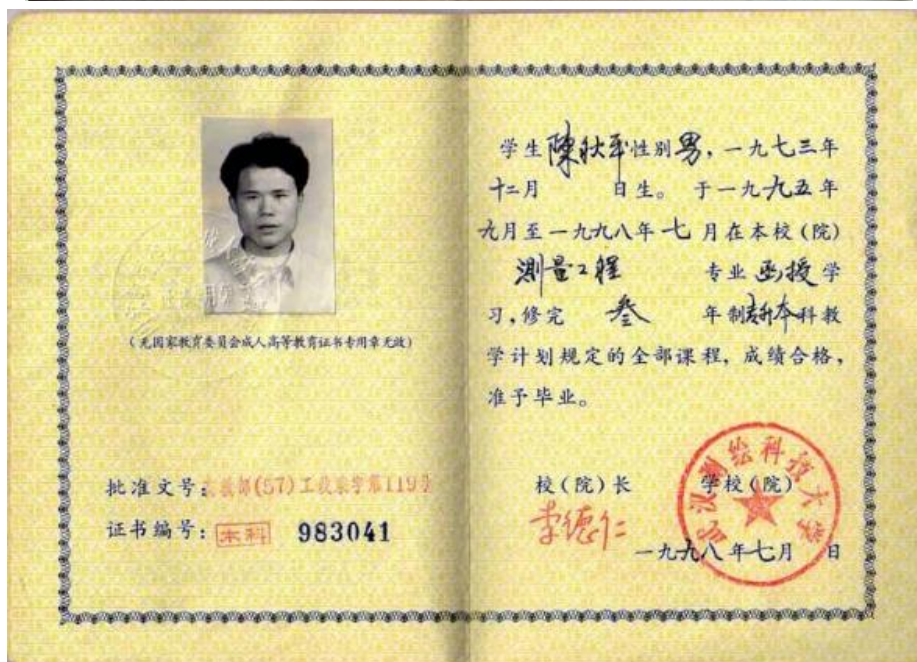 (无国家教育委员会成人高等教育证书专用章无效)
批准文号:教部(57)工教梁字第119号
证书编号:本科 983041
学生陳秋平性别男,一九七三年
十二月 日生。于一九九五年
九月至一九九八年七月在本校(院)
测量工程 专业函授学
习,修完 叁 年制专升本科教
学计划规定的全部课程,成绩合格,
准予毕业。
校(院)长 学校(院)
李德仁
武汉测绘科技大学
一九九八年七月 日